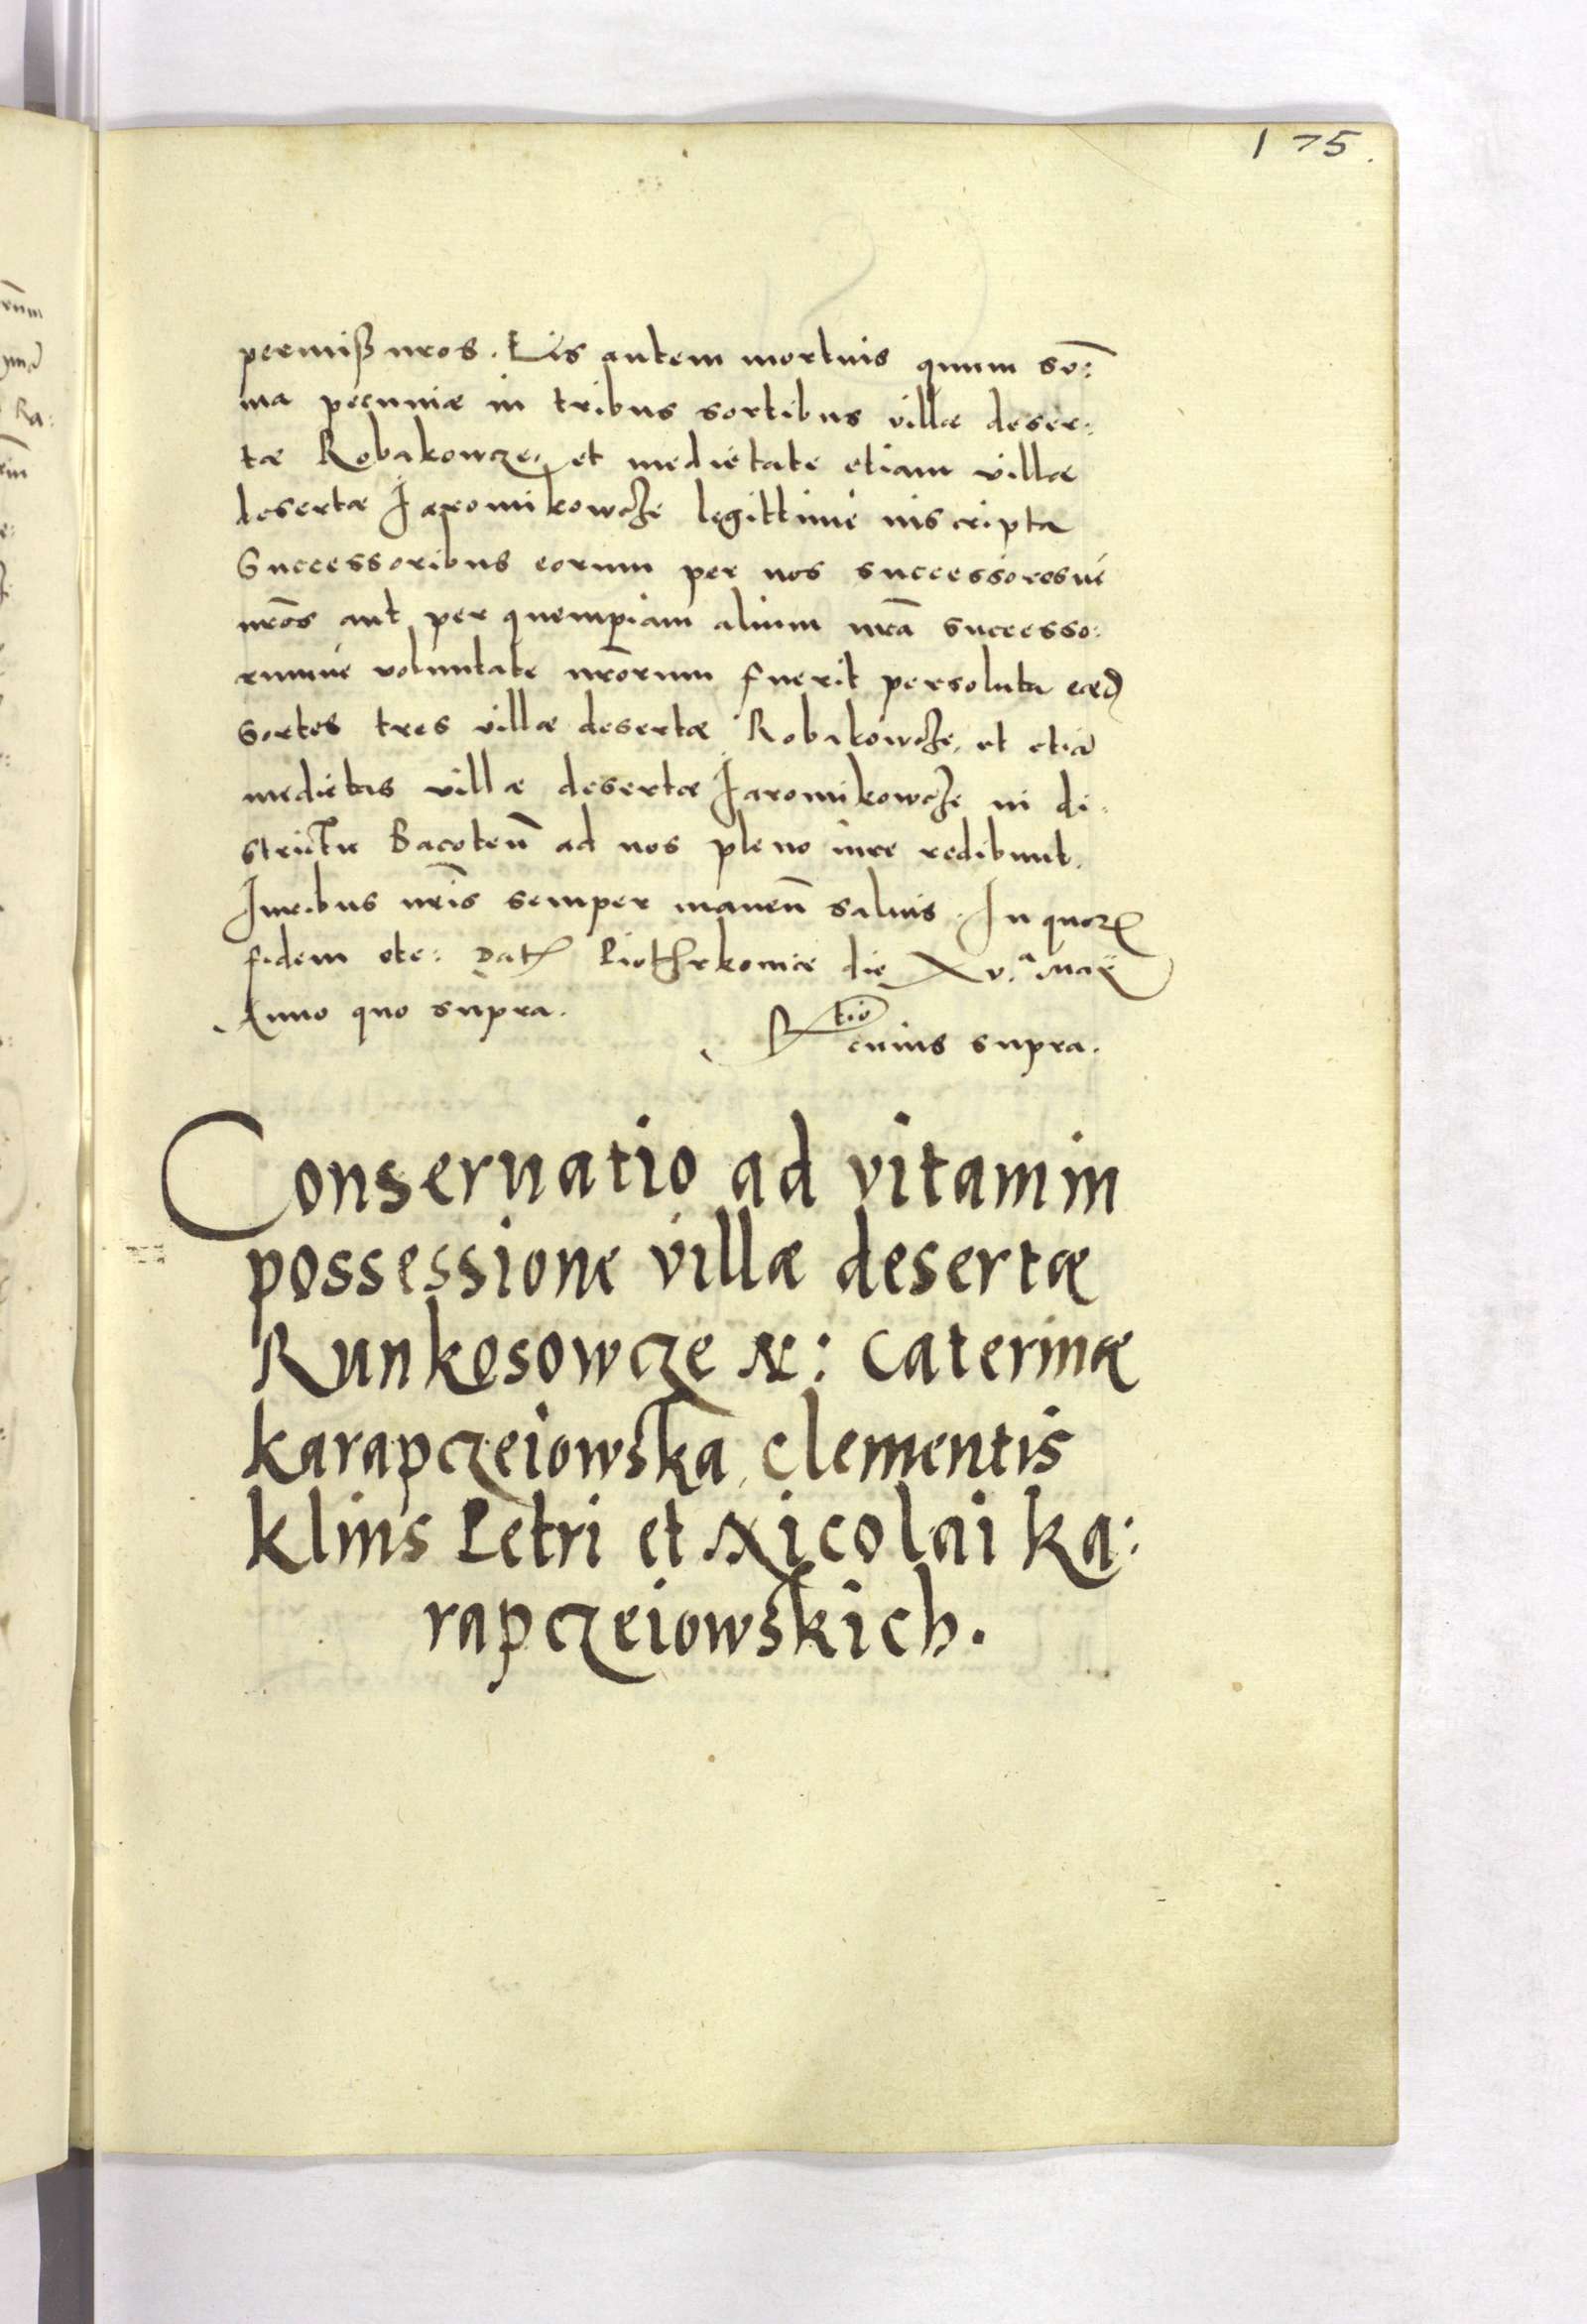 175.
permißuros. Eis autem mortuis quum su̅:
ma pecuniæ in tribus sortibus villæ deser:
tæ Robakowcze, et medietate etiam villæ
desertæ Jaromikowcze legittime inscripta
Successoribus eorum per nos successoresue
nr̅os aut per quempiam alium nr̅a successo:
rumue voluntate nr̅orum fuerit persoluta eæd
Sortes tres villæ desertæ Robakowcze, et etia̅
medietas villæ desertæ Jaromikowcze in di:
strictu Bacoten̅ ad nos pleno iure redibunt.
Juribus nr̅is semper manen̅ saluis. In quoꝝ
fidem etc: Dat Piothrkowiæ die Xv.a Maii
Anno quo supra.
Rtio
cuius supra.
Conseruatio ad vitam in
possessione villæ desertæ
Runkosowcze &: Caterinæ
karapczeiowska, Clementis
klius Petri et Nicolai ka:
rapczeiowskich.